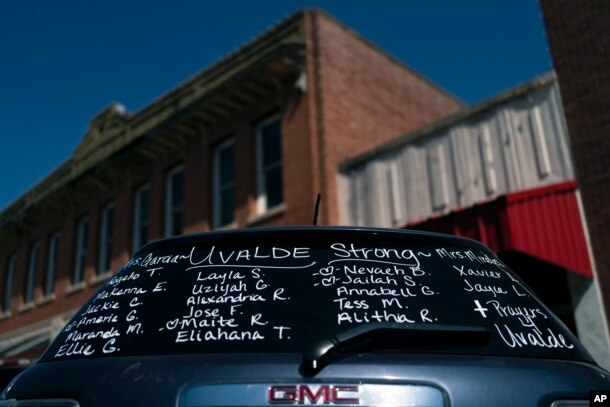 Mrs Garcia ~UVALDE Strong~ Mrs M
Rogelio T.
Makenna E.
Jackie C.
♡ Amerie G.
Maranda M.
Ellie G.
Layla S.
Uziyah G.
Alexandria R.
Jose F.
♡ Maite R.
Eliahana T.
♡ Nevaeh B.
♡ Jailah S.
Annabell G.
Tess M.
Alithia R.
Xavier
Jayce L.
+ Prayers
Uvalde
GMC
AP